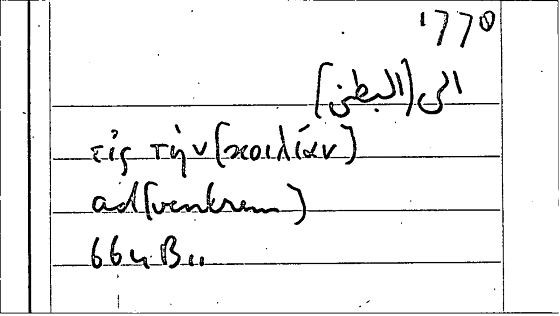 1770
الى (البطن)
εἰς τὴν (κοιλίαν)
ad (ventrem)
664 B 11